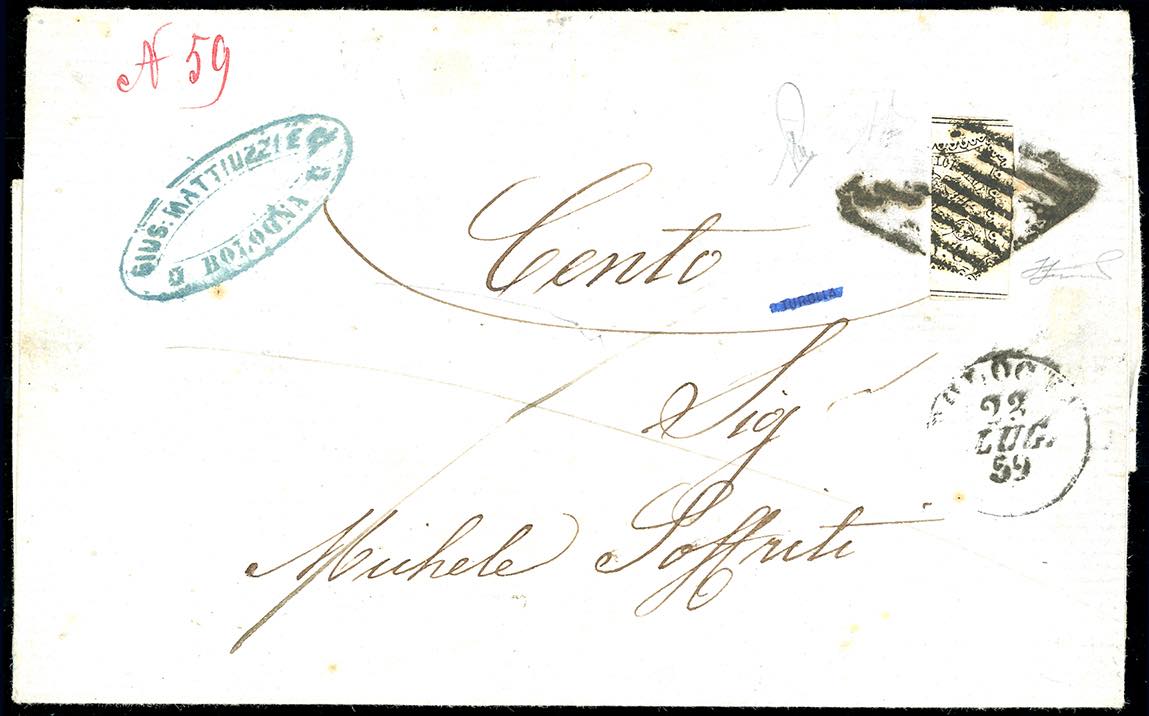 N 59
GIUS: MATTIUZZI E C
BOLOGNA
Cento
Sig
Michele Soffriti
BOLOGNA
22
LUG.
59